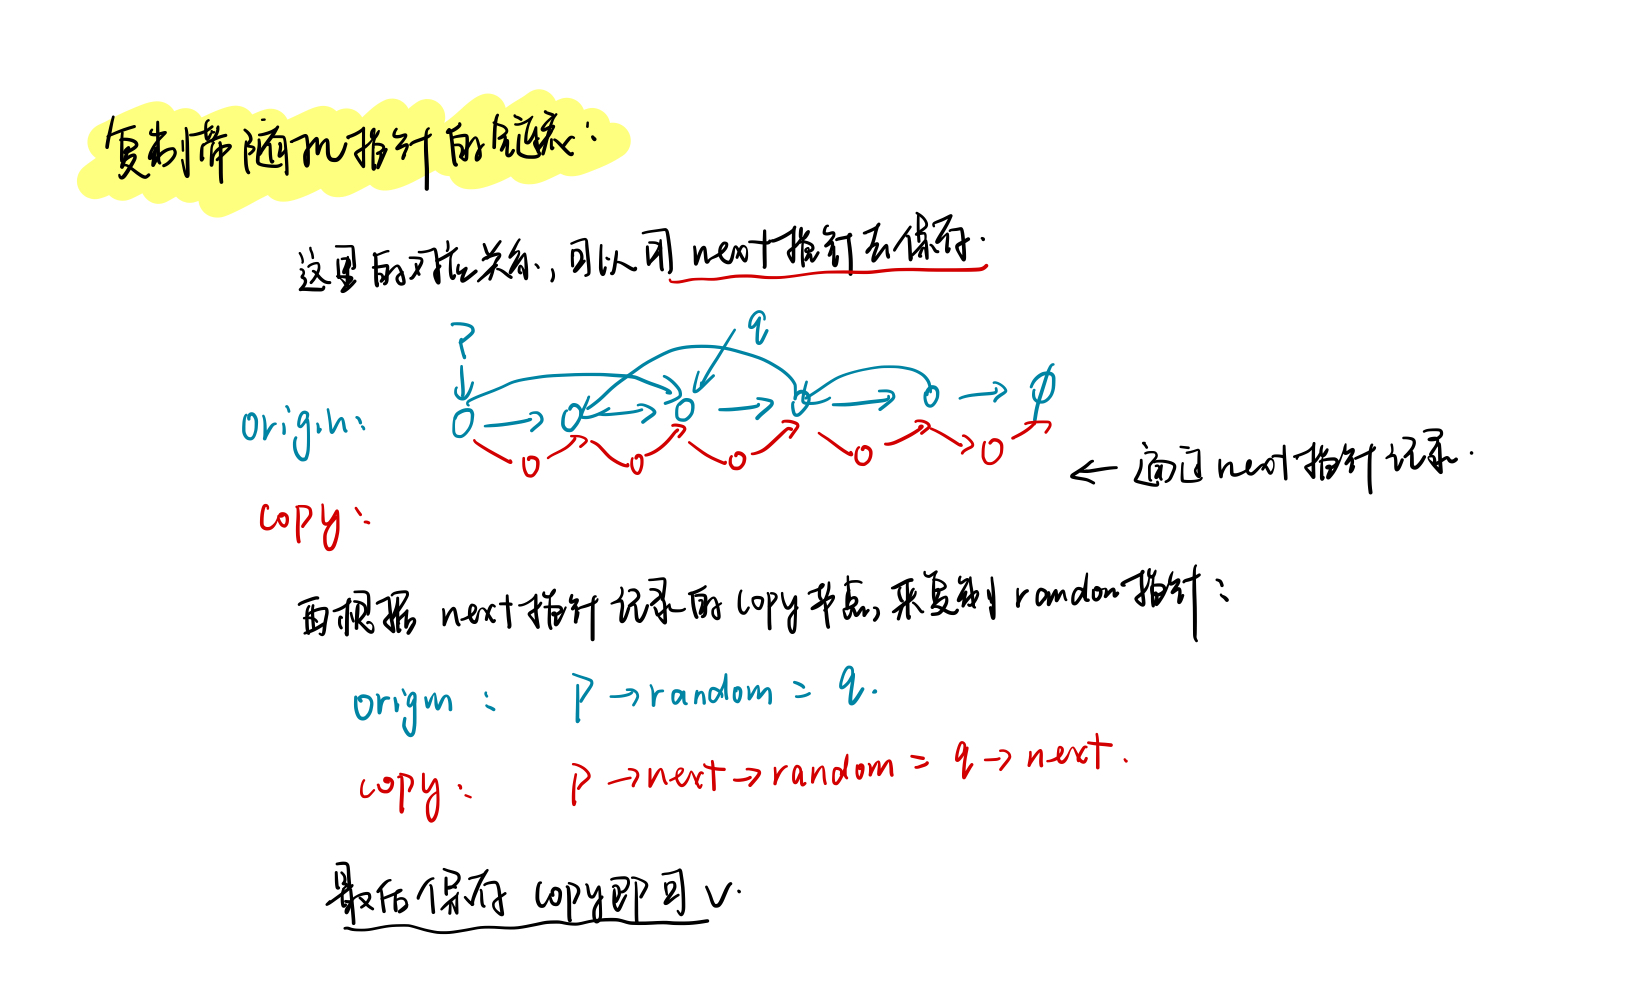 复制带随机指针的链表:
这里的对应关系,可以用next指针去保存.
P
q
origin:
copy:
← 通过next指针记录.
再根据next指针记录的copy节点,来复制random指针:
origin: P→random = q.
copy: P→next→random = q→next.
最后保存copy即可√.